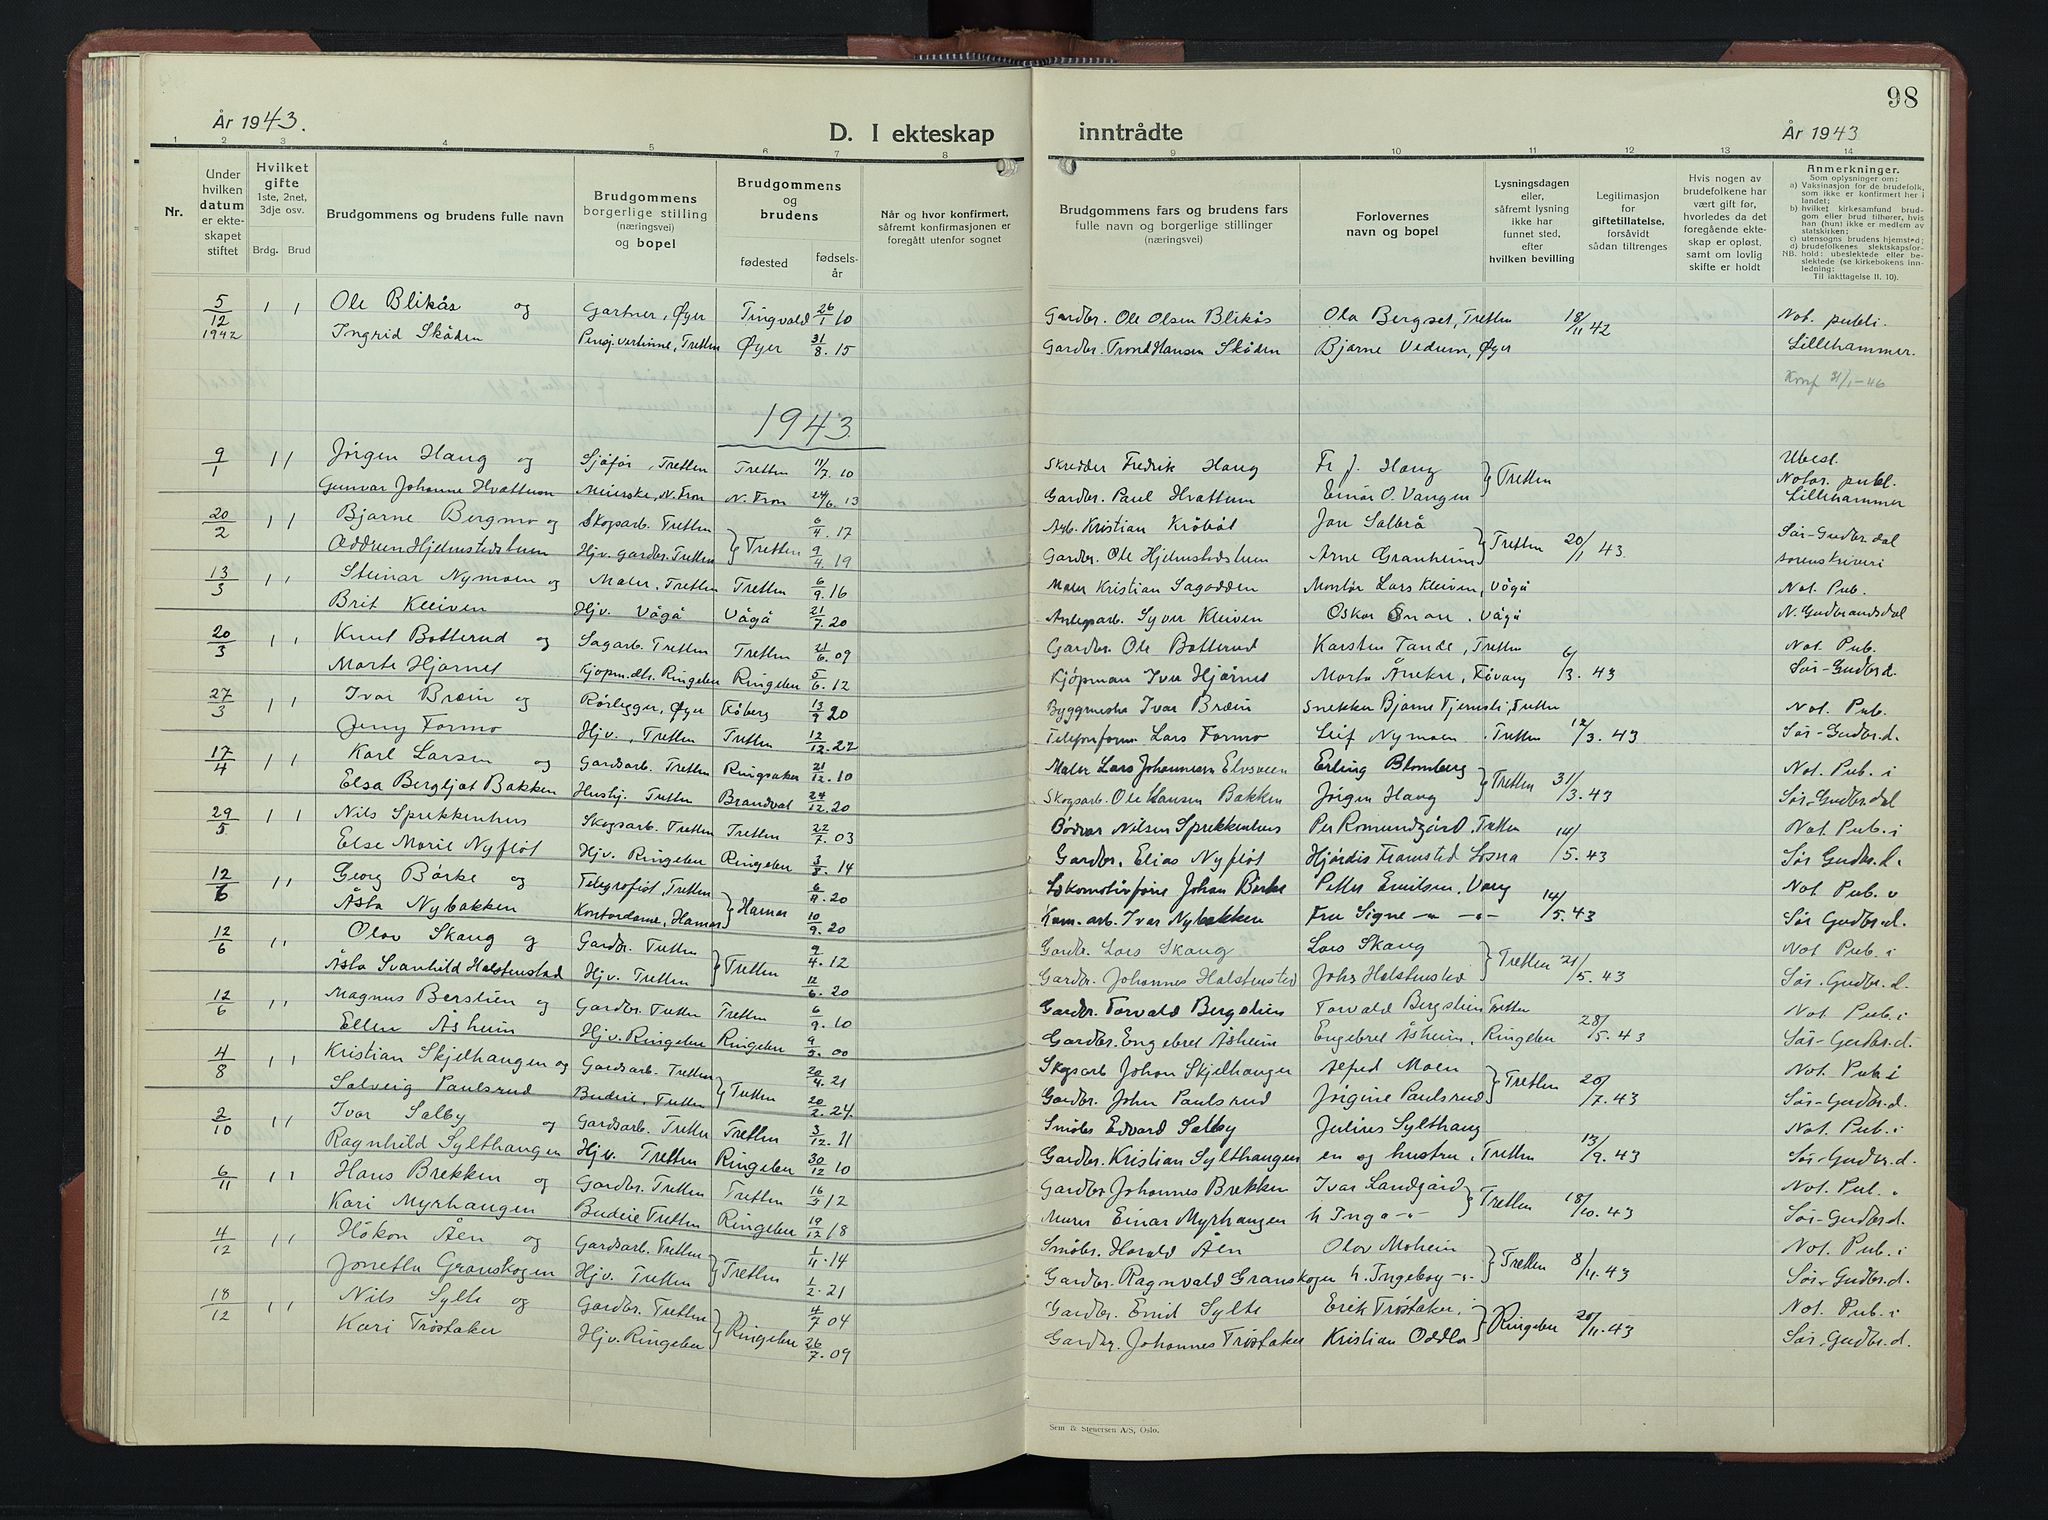 98
År 1943.
D. I ekteskap inntrådte
År 1943
1 2 3 4 5 6 7 8 9 10 11 12 13 14
Nr.
Under hvilken datum er ekteskapet stiftet
Hvilket gifte 1ste, 2net, 3dje osv.
Brdg. Brud
Brudgommens og brudens fulle navn
Brudgommens borgerlige stilling (næringsvei) og bopel
Brudgommens og brudens
fødested
fødselsår
Når og hvor konfirmert, såfremt konfirmasjonen er foregått utenfor sognet
Brudgommens fars og brudens fars fulle navn og borgerlige stillinger (næringsvei)
Forlovernes navn og bopel
Lysningsdagen eller, såfremt lysning ikke har funnet sted, efter hvilken bevilling
Legitimasjon for giftetillatelse, forsåvidt sådan tiltrenges
Hvis nogen av brudefolkene har vært gift før, hvorledes da det foregående ekteskap er opløst, samt om lovlig skifte er holdt
Anmerkninger.
Som oplysninger om:
a) Vaksinasjon for de brudefolk, som ikke er konfirmert her i landet;
b) hvilket kirkesamfund brudgom eller brud tilhører, hvis han (hun) ikke er medlem av statskirken;
c) utensogns brudens hjemsted;
d) brudefolkenes slektskapsforhold: ubeslektede eller beslektede (se kirkebokens innledning:
NB.
Til iakttagelse II. 10).
5/12 1942 1 1 Ole Blikås og Gartner, Øyer Tingvald 26/1 10 Gardbr. Ole Olsen Blikås Ola Bergset, Tretten 18/11 42 Not. publ.
Ingrid Skåden Pensj.vertinne, Tretten Øyer 31/8. 15 Gardbr. Trond Hansen Skåden Bjarne Vedum, Øyer Lillehammer.
Konf 31/1-46
1943
9/1 1 1 Jørgen Haug og Sjåfør, Tretten Tretten 11/7. 10 Skredder Fredrik Haug Fr. J. Haug } Tretten Ubesl.
Gunvor Johanne Hvattum Meierske, N. Fron N. Fron 24/6. 13 Gardbr. Paul Hvattum Einar O. Vangen Notar. publ. Lillehammer
20/2 1 1 Bjarne Bergmo og Skogsarb. Tretten } Tretten 6/4. 17 Arb. Kristian Kråbøl Jon Salbrå } Tretten 20/1 43. Sør-Gudbr.dal
Oddrun Hjelmstadstuen Hjv. gardbr. Tretten 9/4. 19 Gardbr. Ole Hjelmstadstuen Arne Granheim sorenskriveri
13/3 1 1 Steinar Nymoen og Maler, Tretten Tretten 6/9. 16 Maler Kristian Sagodden Montør Lars Kleiven, Vågå Not. Pub.
Brit Kleiven Hjv. Vågå Vågå 21/7. 20 Anleggsarb. Syver Kleiven Oskar Snare. Vågå N. Gudbrandsdal
20/3 1 1 Knut Botterud og Sagarb. Tretten Tretten 21/6. 09 Gardbr. Ole Botterud Karsten Tande, Tretten Not. Pub.
Marte Hjørnet Kjøpm.dtr. Ringebu Ringebu 5/6. 12 Kjøpman Iver Hjørnet 6/3. 43 Sør-Gudbr.d.
27/3 1 1 Ivar Bræin og Rørlegger, Øyer Fåberg 13/9 20 Byggmester Ivar Bræin Snekker Bjarne Tjernsli, Tretten Not. Pub.
Jeny Formo Hjv., Tretten Tretten 12/12. 22 Telefonform Lars Formo Leif Nymoen. Tretten 12/3. 43 Sør-Gudbr.d.
17/4 1 1 Karl Larsen og Gardsarb. Tretten Ringsaker 21/12. 10 Maler Lars Johannesen Elvsveen Erling Blomberg } Tretten 31/3. 43 Not. Pub. i
Elsa Bergljot Bakken Hushj. Tretten Brandval 24/12. 20 Skogsarb. Ole Hansen Bakken Jørgen Haug Sør-Gudbr.dal
29/5 1 1 Nils Sprekkenhus Skogsarb. Tretten Tretten 22/7. 03 Bødvar Nilsen Sprekkenhus Per Romundgård. Tretten Not. Pub. i
Else Marie Nyfløt Hjv. Ringebu Ringebu 3/8. 14 Gardbr. Elias Nyfløt Hjørdis Framstad Losna 14/5. 43 Sør Gudbr.d.
12/6 1 1 Georg Børke og Telegrafist, Tretten } Hamar 6/9. 20 Lokomotivfører Johan Børke Petter Emilsen, Vang Not. Pub.
Åsta Nybakken Kontordame, Hamar 10/9. 20 Kom. arb. Ivar Nybakken Fru Signe -"- -"- 14/5. 43 Sør Gudbr.d.
12/6 1 1 Olav Skaug og Gardbr. Tretten } Tretten 9/4. 12 Gardbr. Lars Skaug Lars Skaug } Tretten 21/5. 43 Not Pub. i
Åsta Svanhild Holstenstad Hjv. Tretten 12/6. 20 Gardbr. Johannes Holstenstad Johs Holstenstad Sør. Gudbr.d.
12/6 1 1 Magnus Berstien og Gardbr. Tretten Tretten 6/9. 10 Gardbr. Torvald Bergstien Torvald Bergstien Tretten Not. Pub. i
Ellen Åsheim Hjv. Ringebu Ringebu 9/5. 00 Gardbr. Engebret Åsheim Engebret Åsheim, Ringebu 28/5. 43 Sør-Gudbr.d.
4/8 1 1 Kristian Skjelhaugen og Gardsarb. Tretten } Tretten 20/4. 21 Skogsarb Johan Skjelhaugen Alfred Moen } Tretten 20/7. 43 Not. Pub i
Solveig Paulsrud Budeie, Tretten 20/2. 24. Gardbr. John Paulsrud Jørgine Paulsrud Sør-Gudbr.d.
2/10 1 1 Ivar Salby og Gardsarb. Tretten Tretten 3/12. 11 Småbr. Edvard Salby Julius Sylthaug Not. Pub. i
Ragnhild Sylthaugen Hjv. Tretten Ringebu 30/12 10 Gardbr. Kristian Sylthaugen en og hustru. Tretten 13/9. 43 Sør-Gudbr.d.
6/11 1 1 Hans Brekken og Gardbr. Tretten Tretten 16/3 12 Gardbr Johannes Brekken Ivar Landgård } Tretten 18/10. 43 Not. Pub.
Kari Myrhaugen Budeie Tretten Ringebu 19/12 18 Murer Einar Myrhaugen h. Inga -"- Sør-Gudbr.d.
4/12 1 1 Håkon Åen og Gardsarb. Tretten } Tretten 1/11. 14 Småbr. Harald Åen Olov Moheim } Tretten 8/11. 43 Not. Pub. i
Jonetta Granskogen Hjv. Tretten 1/2. 21 Gardbr. Ragnvald Granskogen h. Ingeborg -"- Sør. Gudbr.d.
18/12 1 1 Nils Sylte og Gardbr. Tretten } Ringebu 4/7 04 Gardbr. Emil Sylte Erik Trøstaker } Ringebu 20/11. 43 Not. Pub. i
Kari Trøstaker Hjv. Ringebu 26/7. 09 Gardbr. Johannes Trøstaker Kristian Odden Sør. Gudbr.d.
Sem & Stenersen A/S, Oslo.